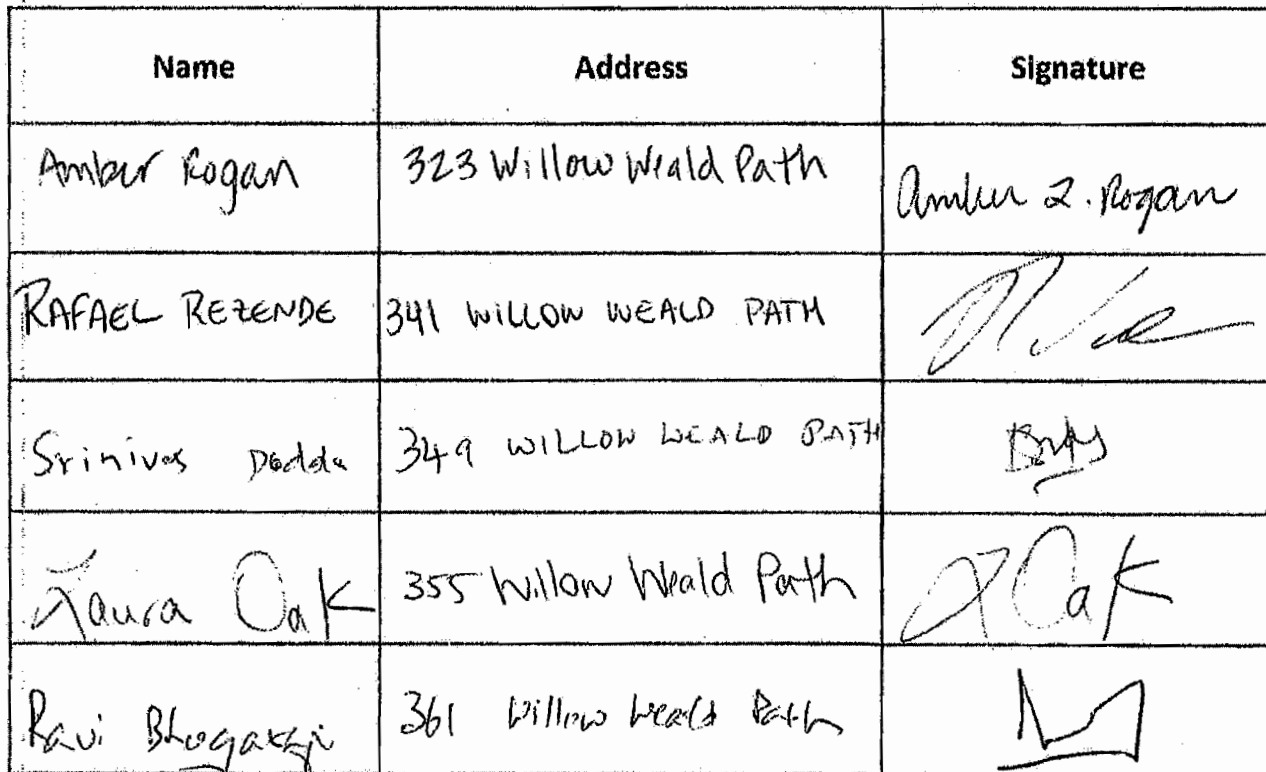 Name Address Signature
Amber Rogan 323 Willow Weald Path Amber L. Rogan
RAFAEL REZENDE 341 WILLOW WEALD PATH
Srinivas Dodda 349 WILLOW WEALD PATH
Laura Oak 355 Willow Weald Path L Oak
Ravi 361 Willow Weald Path